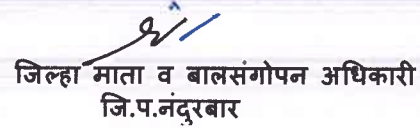 जिल्हा माता व बालसंगोपन अधिकारी
जि.प.नंदुरबार